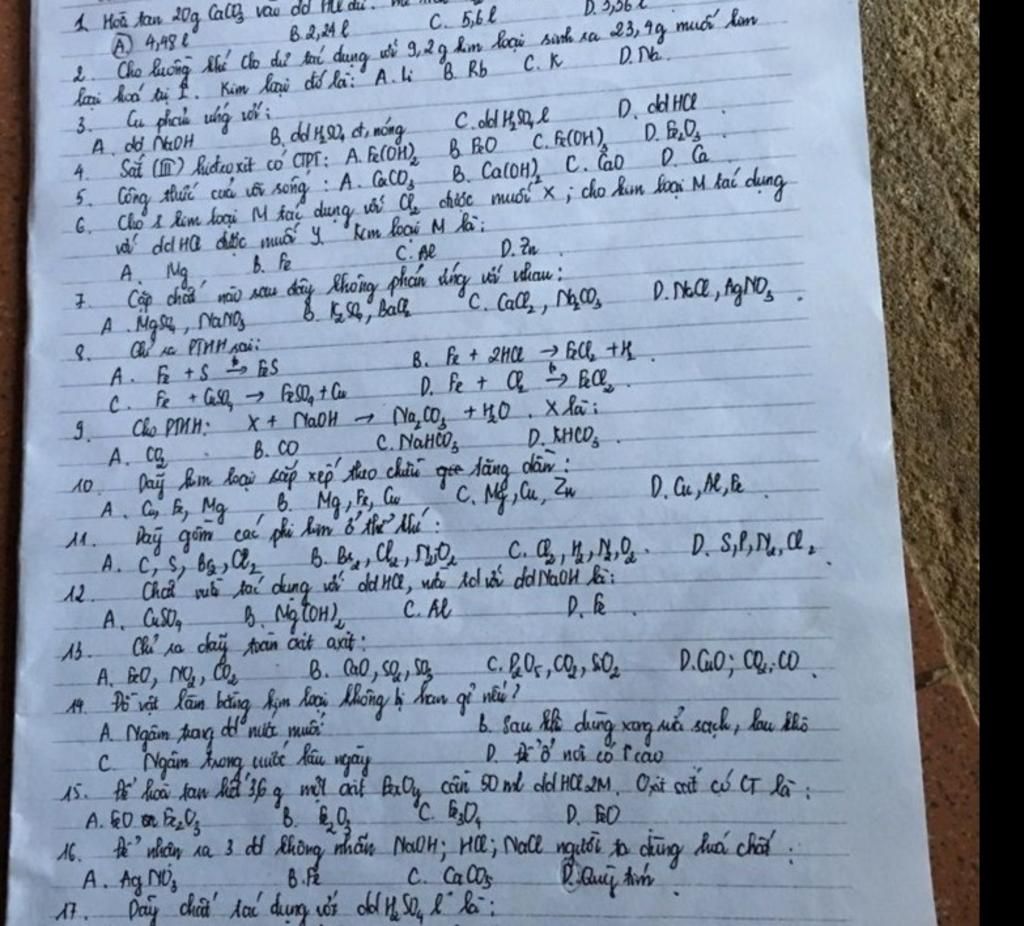 1. Hoà tan 20g CaCO3 vào dd HCl dư.
A. 4,48 l B. 2,24 l C. 5,6 l D. 3,36 l
2. Cho luồng khí Clo dư tác dụng với 9,2g kim loại sinh ra 23,4g muối kim
loại hoá trị I. Kim loại đó là: A. Li B. Rb C. K D. Na.
3. Cu phản ứng với:
A. dd NaOH B. dd H2SO4 đ, nóng C. dd H2SO4 l D. dd HCl
4. Sắt (III) hiđroxit có CTPT: A. Fe(OH)2 B. FeO C. Fe(OH)3 D. Fe2O3
5. Công thức của vôi sống: A. CaCO3 B. Ca(OH)2 C. CaO D. Ca
6. Cho 1 kim loại M tác dụng với Cl2 được muối X; cho kim loại M tác dụng
với dd HCl được muối Y. Kim loại M là:
A. Mg B. Fe C. Al D. Zn
7. Cặp chất nào sau đây không phản ứng với nhau:
A. MgSO4, NaNO3 B. K2SO4, BaCl2 C. CaCl2, Na2CO3 D. NaCl, AgNO3.
8. Chỉ ra PTHH sai:
A. Fe + S → FeS B. Fe + 2HCl → FeCl2 + H2.
C. Fe + CuSO4 → FeSO4 + Cu D. Fe + Cl2 → FeCl2.
9. Cho PTHH: X + NaOH → Na2CO3 + H2O. X là:
A. CO2 B. CO C. NaHCO3 D. KHCO3.
10. Dãy kim loại sắp xếp theo chiều tăng dần:
A. Cu, Fe, Mg B. Mg, Fe, Cu C. Mg, Cu, Zn D. Cu, Al, Fe.
11. Dãy gồm các phi kim ở thể khí:
A. C, S, Br2, Cl2 B. Br2, Cl2, N2, O2 C. Cl2, H2, N2, O2. D. S, P, N2, Cl2
12. Chất vừa tác dụng với dd HCl, vừa td với dd NaOH là:
A. CuSO4 B. Mg(OH)2 C. Al D. Fe.
13. Chỉ ra dãy toàn oxit axit:
A. FeO, NO2, CO2 B. CaO, SO2, SO3 C. P2O5, CO2, SiO2 D. CuO; CO2, CO
14. Đồ vật làm bằng kim loại không bị han gỉ nếu?
A. Ngâm trong dd nước muối B. Sau khi dùng xong rửa sạch, lau khô
C. Ngâm trong nước lâu ngày D. Để ở nơi có t° cao
15. Để hoà tan hết 3,6 g một oxit FexOy cần 50 ml dd HCl 2M. Oxit sắt có CT là:
A. FeO or Fe2O3 B. Fe2O3 C. Fe3O4 D. FeO
16. Để nhận ra 3 dd không nhãn NaOH; HCl; NaCl người ta dùng hoá chất:
A. AgNO3 B. Fe C. CaCO3 D. Quỳ tím
17. Dãy chất tác dụng với dd H2SO4 l là: